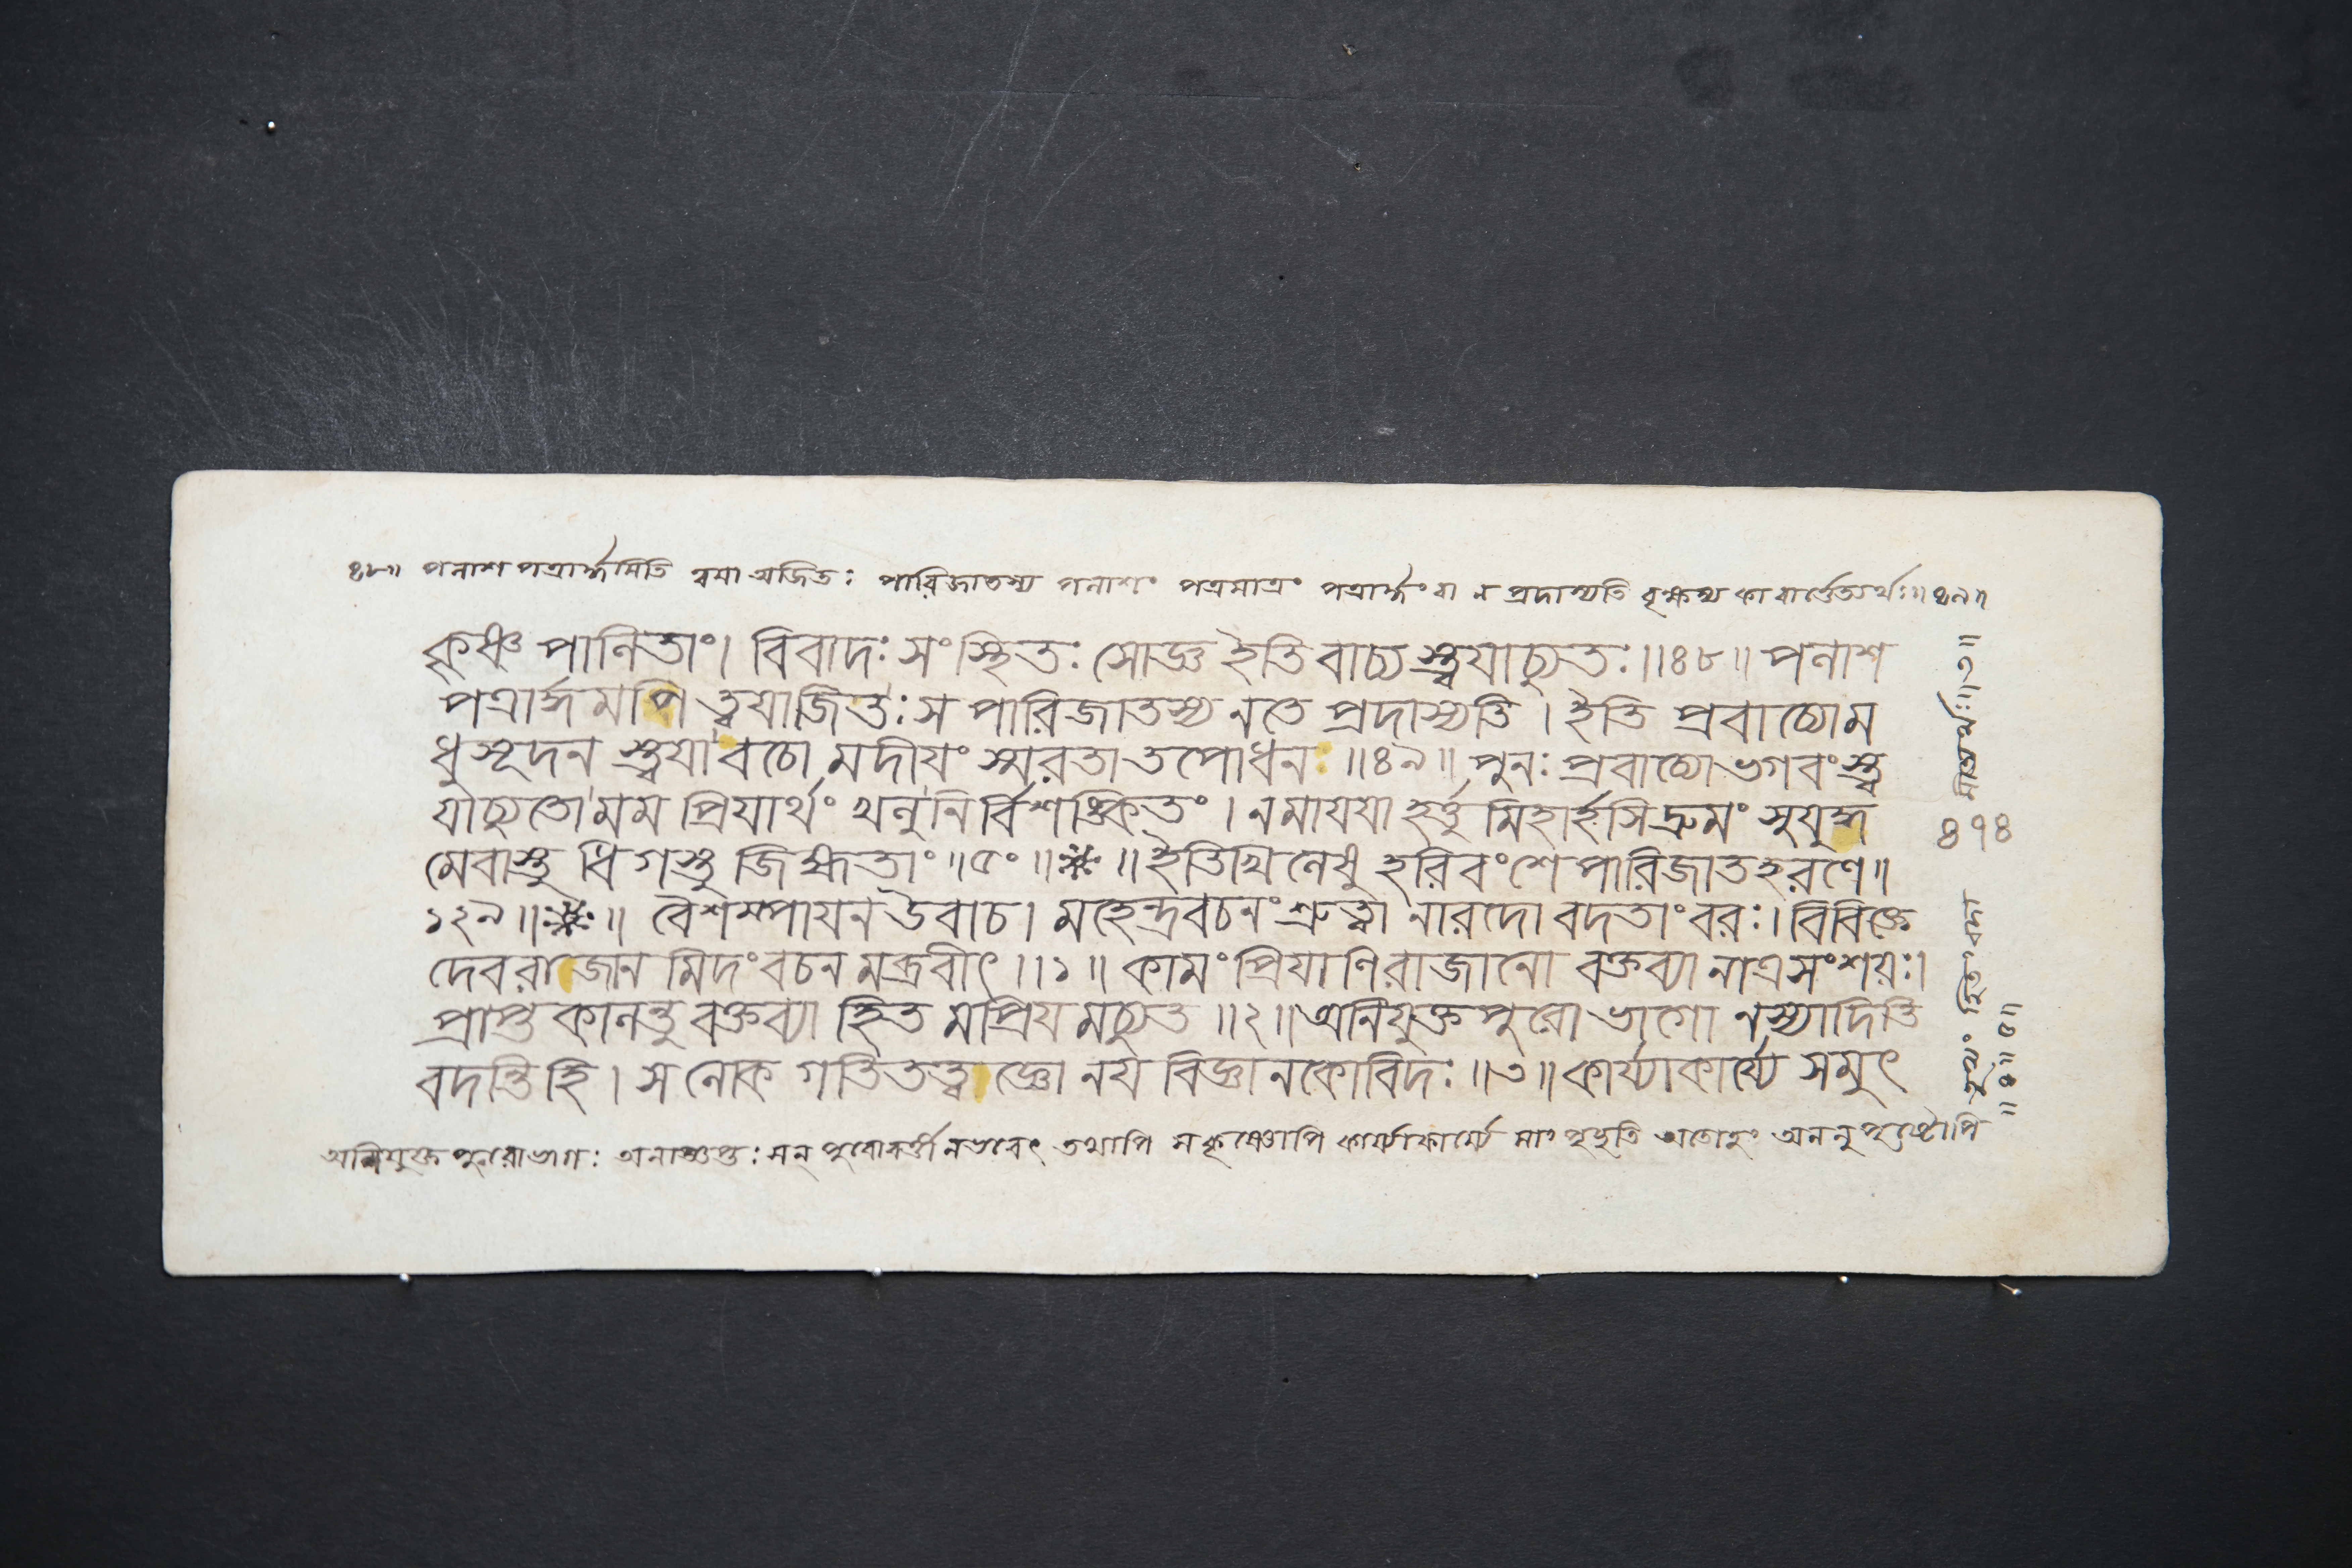 ৪৮॥ পলাশ পত্রার্দ্ধমিতি ত্বয়া অজিতঃ পারিজাতস্য পলাশং পত্রমাত্রং পত্রার্দ্ধং বা ন প্রদাস্যতি বৃক্ষস্য কা বার্ত্তেত্যর্থঃ॥৪৯॥
কৃষ্ণ পালিতাং। বিবাদঃ সংস্থিতঃ সোজ্ঞ ইতি বাচ্য স্ত্বয়াচ্যুতঃ॥৪৮॥ পলাশ
পত্রার্দ্ধমপি ত্বয়াজিতঃ স পারিজাতস্য নতে প্রদাস্যতি। ইতি প্রবাচ্যোম
ধুসূদন স্ত্বয়া বচো মদীয়ং স্মরতা তপোধন॥৪৯॥ পুনঃ প্রবাচ্যো ভগবংস্ত্ব
য়াচ্যুতো মম প্রিয়ার্থং খলু নির্বিশঙ্কিতং। নমায়য়া হর্ত্তু মিহার্হসি দ্রুমং সুযুদ্ধ
মেবাস্তু ধিগস্তু জিহ্মতাং॥৫০॥ ॥ইতি খিলেষু হরিবংশে পারিজাতহরণে॥
১২৯॥ ॥ বৈশম্পায়ন উবাচ। মহেন্দ্রবচনং শ্রুত্বা নারদো বদতাং বরঃ। বিবিক্তে
দেবরাজান মিদং বচন মব্রবীৎ॥১॥ কামং প্রিয়াণি রাজানো বক্তব্যা নাত্র সংশয়ঃ।
প্রাপ্ত কালন্তু বক্তব্যা হিত মপ্রিয় মচ্যুত॥২॥ অনিযুক্ত পুরো ভাগো নস্যাদিতি
বদন্তি হি। স লোক গতি তত্ত্বজ্ঞো নয় বিজ্ঞানকোবিদঃ॥৩॥ কার্য্যাকার্য্যে সমুৎ
অনিযুক্ত পুরোভাগঃ পুরোবর্ত্তী নভবেৎ তথাপি কার্য্যাকার্য্যে মাং পৃচ্ছতি অতোহং
৪৭৪